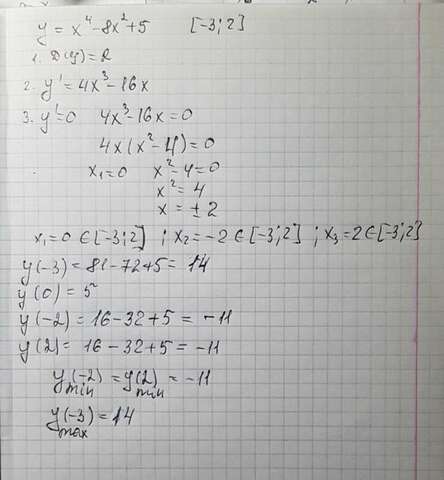 y = x⁴-8x²+5 [-3;2]
1. D(y)=R
2. y' = 4x³-16x
3. y'=0 4x³-16x=0
4x(x²-4)=0
x₁=0 x²-4=0
x²=4
x=±2
x₁=0 ∈[-3;2] ; x₂=-2 ∈[-3;2] ; x₃=2∈[-3;2]
y(-3)=81-72+5=14
y(0)=5
y(-2)=16-32+5=-11
y(2)=16-32+5=-11
y(-2)=y(2)=-11
min min
y(-3)=14
max